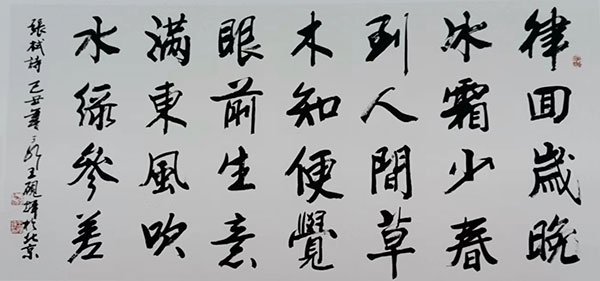 律回歲晚
冰霜少春
到人間草
木知便覺
眼前生意
滿東風吹
水綠參差
張栻詩 己丑 王 於北京